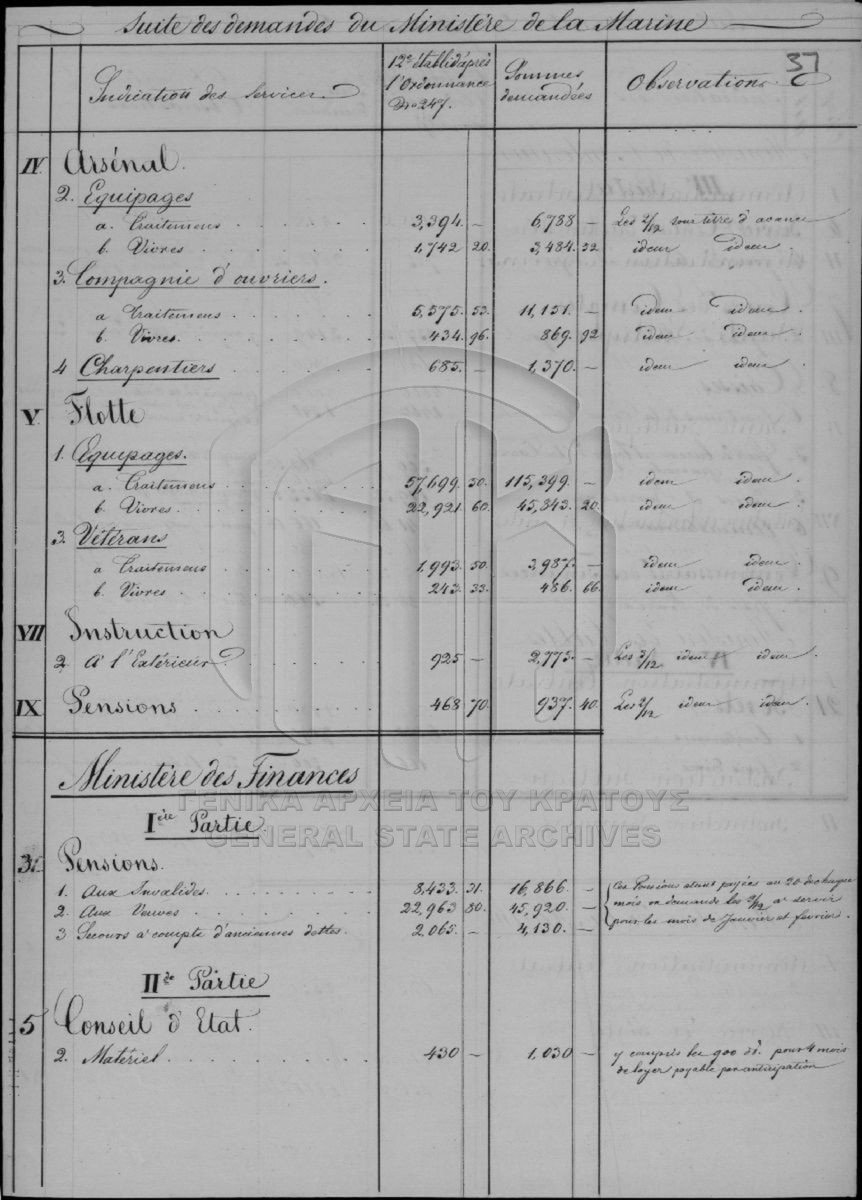 Suite des demandes du Ministère de la Marine
37
Indication des Services.
12e établi d'après l'Ordonnance No 247.
Sommes demandées
Observations.
IV Arsénal.
2. Equipages
a. Traitemens 3,394. — 6,788 — Les 2/12 sous titre d'avance
b. Vivres 1,742 20. 3,484. 32 idem idem.
3. Compagnie d'ouvriers.
a Traitemens 5,575. 53. 11,151. — idem idem.
b. Vivres. 434. 96. 869. 92 idem idem.
4 Charpentiers 685. — 1,370. — idem idem.
V. Flotte
1. Equipages.
a. Traitemens 57,699. 50. 115,399. — idem idem.
b. Vivres. 22,921. 60. 45,843. 20. idem idem.
3. Vétérans
a Traitemens 1,993. 50. 3,987. — idem idem.
b. Vivres 243. 33. 486. 66. idem idem.
VII Instruction
2 à l'Extérieur. 925 — 2,775. — Les 3/12 idem idem.
IX Pensions 468 70. 937. 40. Les 2/12 idem idem.
Ministère des Finances
Iere Partie.
3. Pensions.
1. Aux Invalides. 8,433. 31. 16,866. — Ces Pensions étant payées au 20 de chaque
2. Aux Veuves 22,963 80. 45,920. — mois on demande les 2/12 à servir
3 Secours à compte d'anciennes dettes. 2,065. — 4,130. — pour les mois de Janvier et fevrier.
IIde Partie
5 Conseil d'Etat.
2. Matériel. 430 — 1,030 — y compris les 900 d. pour 4 mois
de loyer payable par anticipation
ΓΕΝΙΚΑ ΑΡΧΕΙΑ ΤΟΥ ΚΡΑΤΟΥΣ
GENERAL STATE ARCHIVES